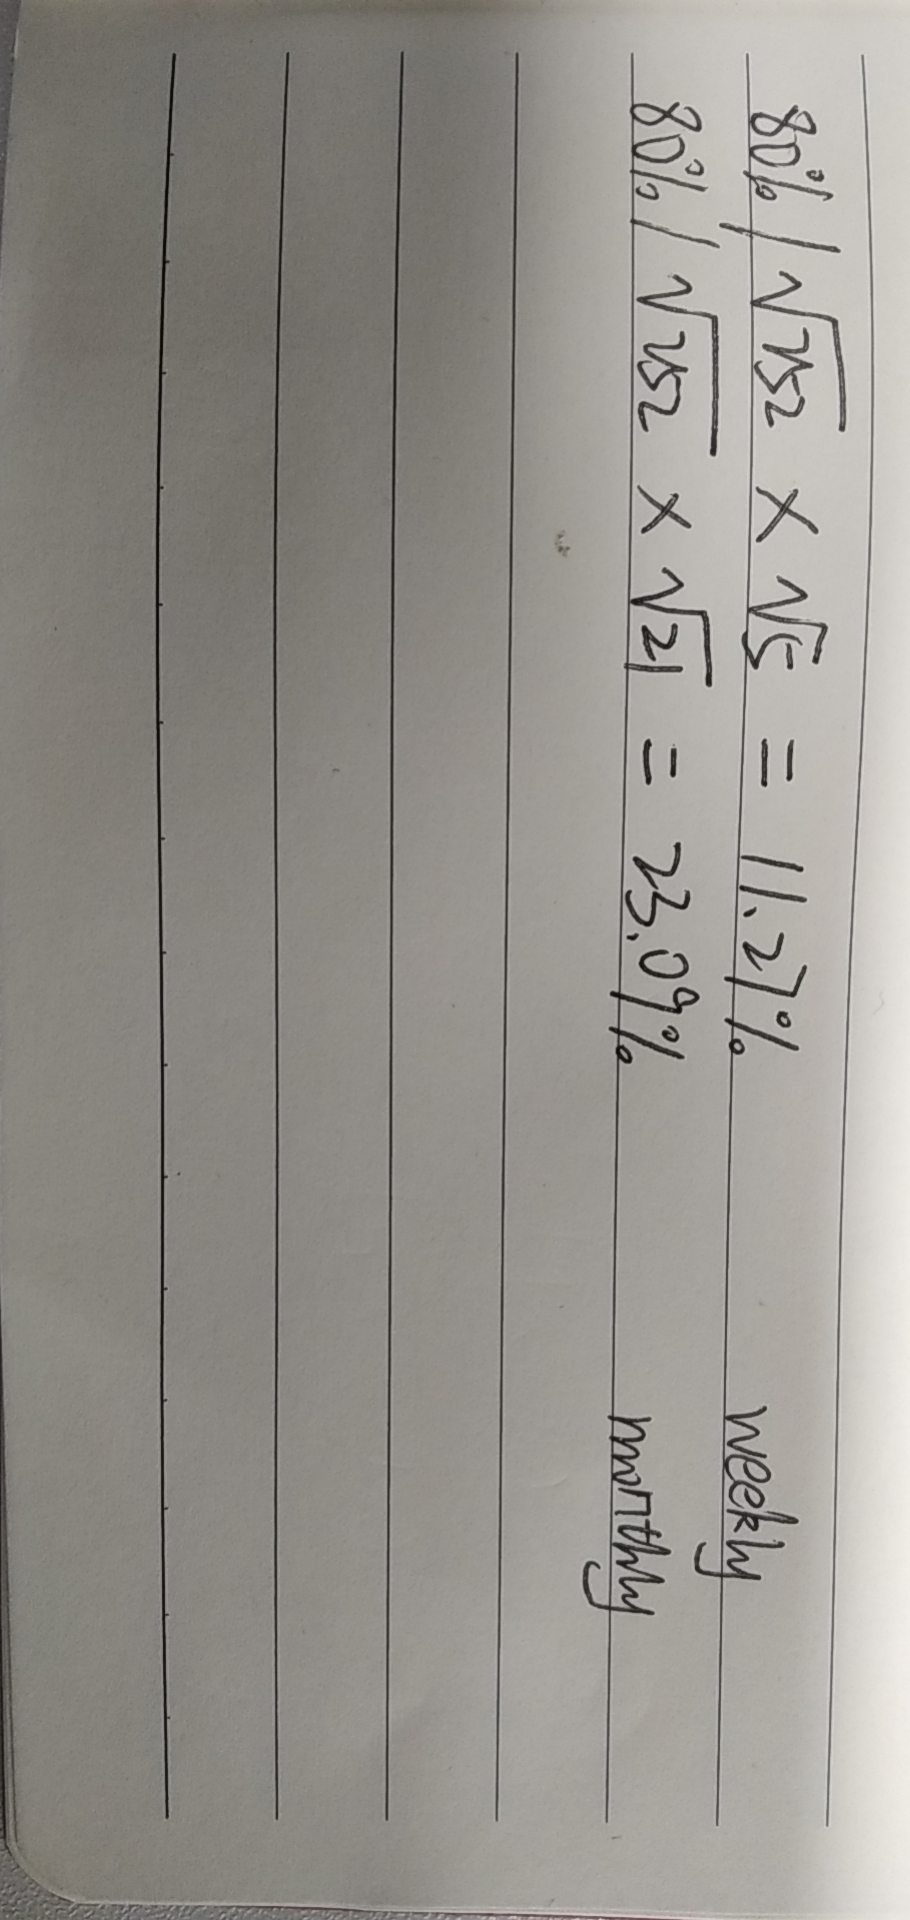 80% / √252 × √5 = 11.27% weekly
80% / √252 × √21 = 23.09% monthly